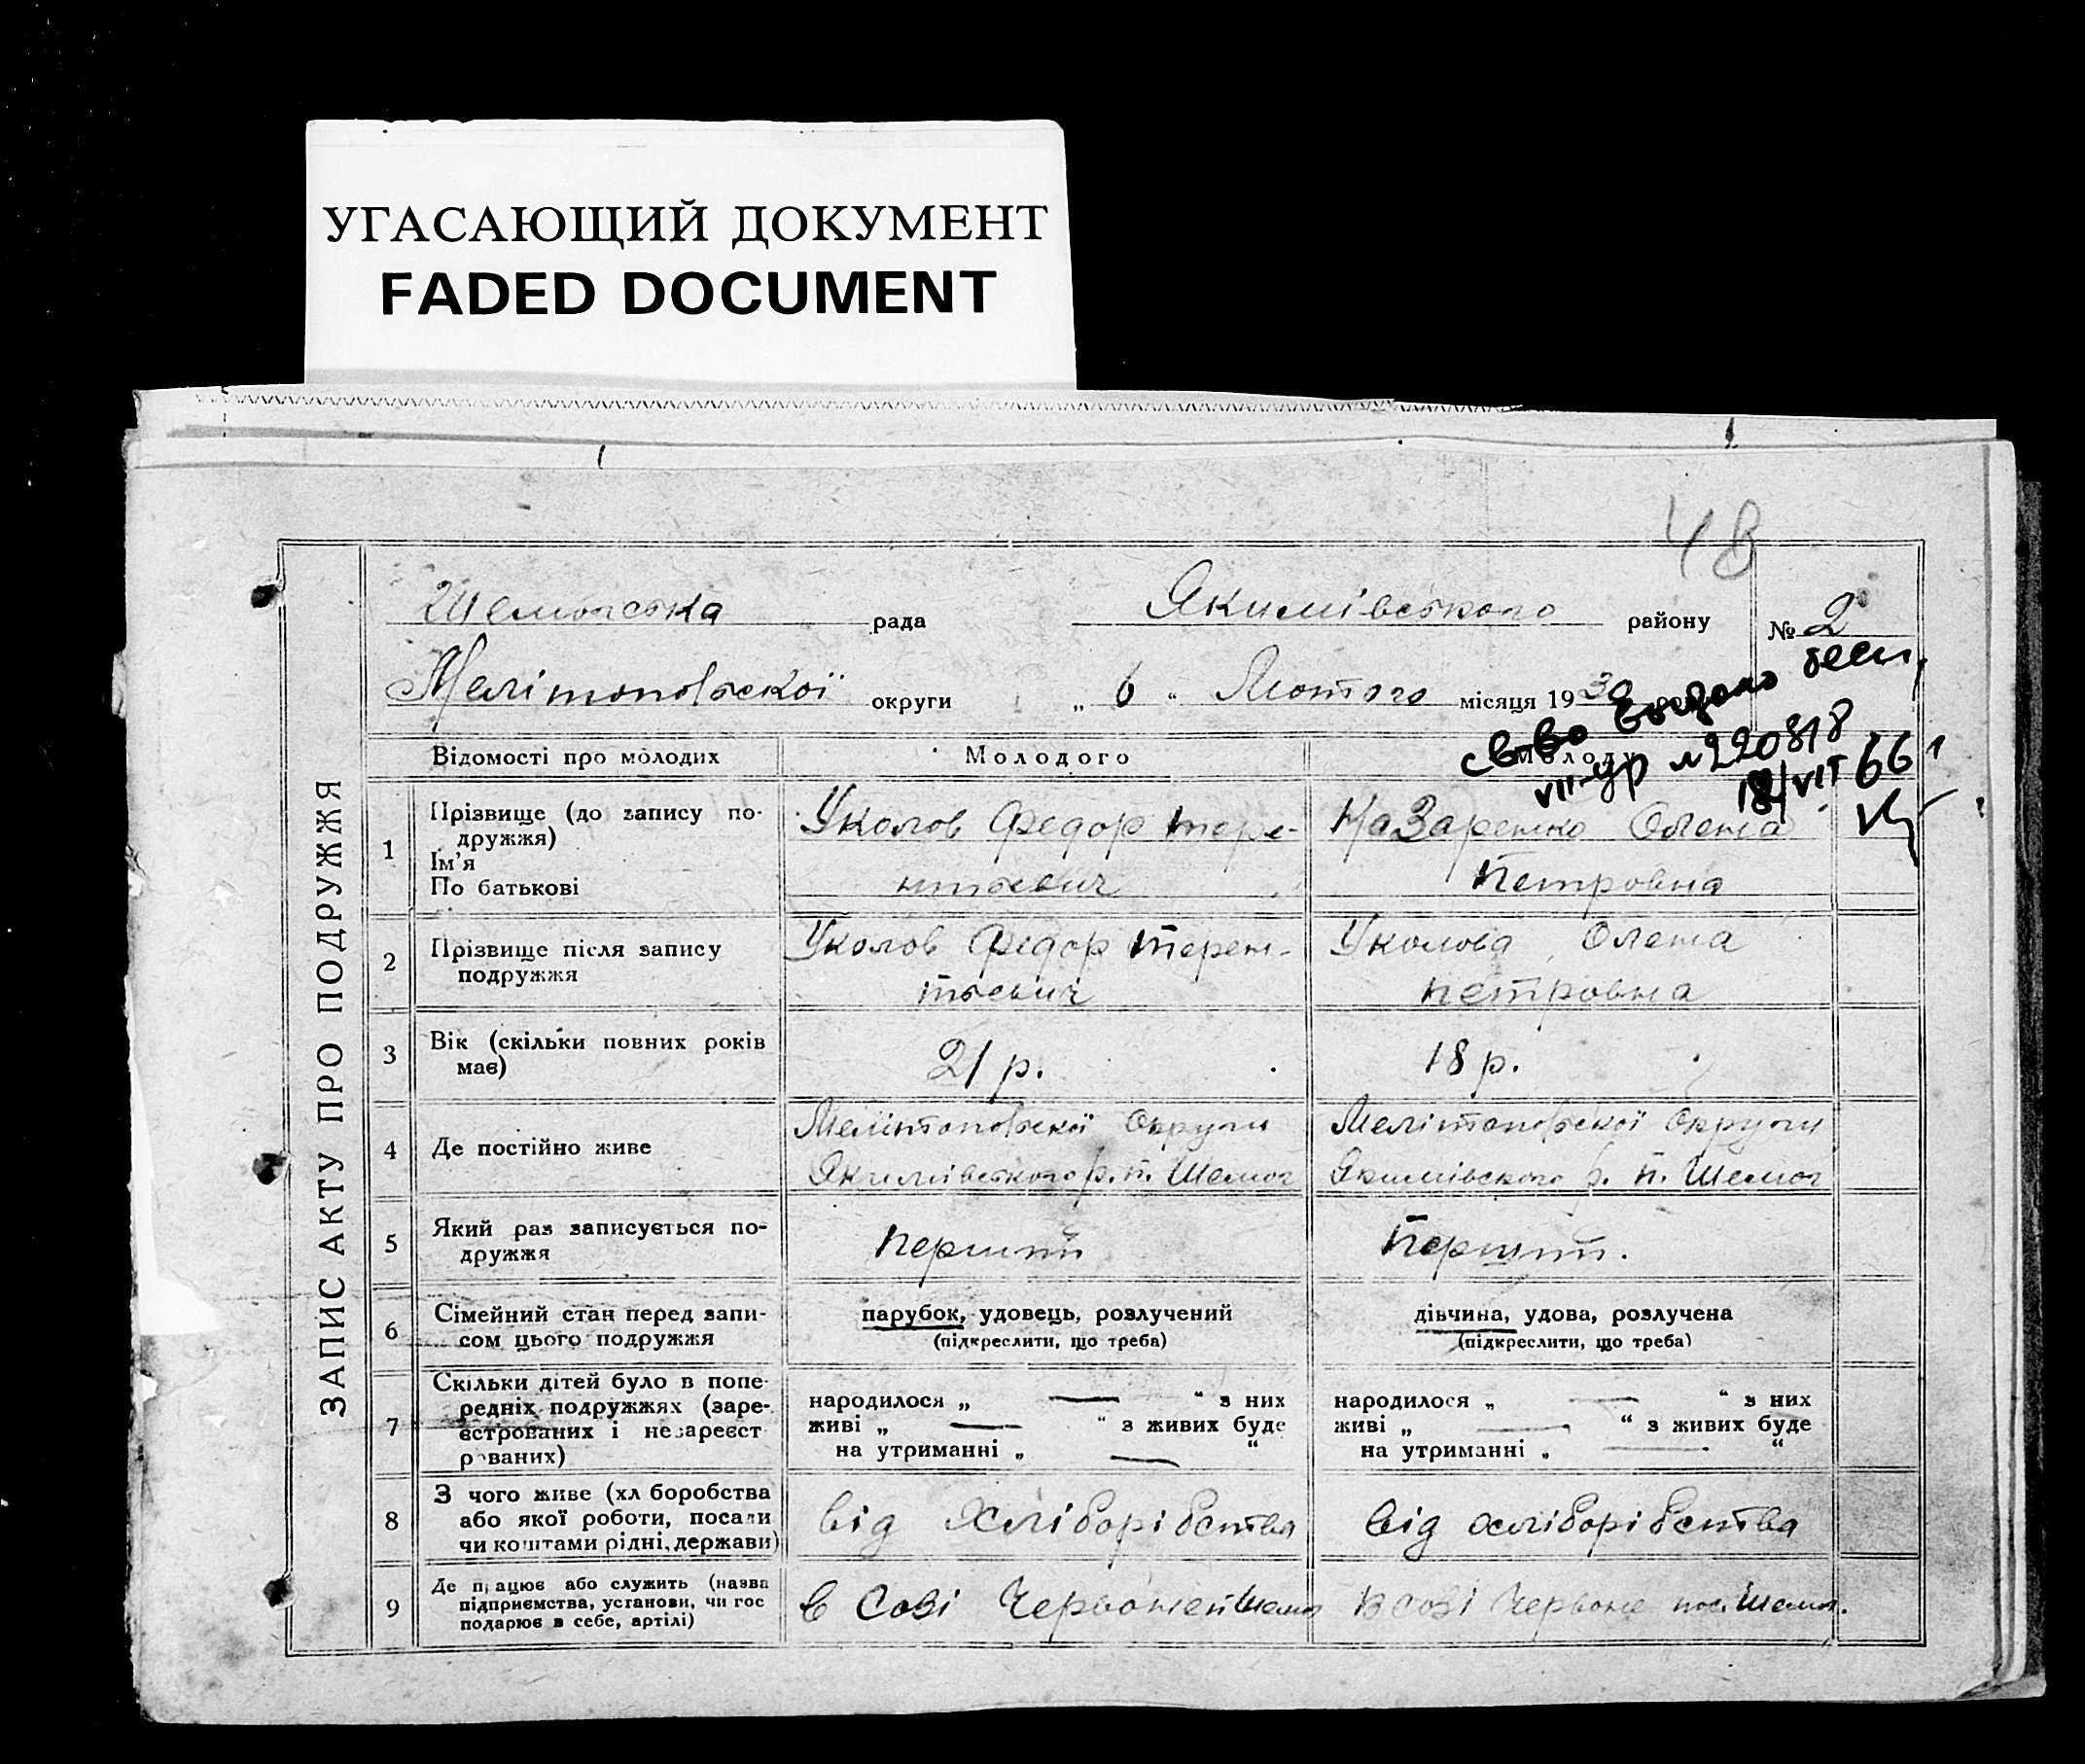 УГАСАЮЩИЙ ДОКУМЕНТ
FADED DOCUMENT
48
ЗАПИС АКТУ ПРО ПОДРУЖЖЯ
рада Якимівського району № 2
Мелітопольської округи „ 6 “ Лютого місяця 1930
св-во выдано
VII-УР №220818
18/VII 66
Відомості про молодих Молодого
1 Прізвище (до запису по-
дружжя)
Ім'я
По батькові
Уколов Федор Тере-
нтьевич
Назаренко Олена
Петровна
2 Прізвище після запису
подружжя
Уколов Федор Терен-
тьевич
Уколова Олена
Петровна
3 Вік (скільки повних років
має)
21 р.
18 р.
4 Де постійно живе
Мелітопольської Округи
Якимівського р. п. Шемот
Мелітопольської Округи
Якимівського р. п. Шемот
5 Який раз записується по-
дружжя
Перший
Перший.
6 Сімейний стан перед запи-
сом цього подружжя
парубок, удовець, розлучений
(підкреслити, що треба)
дівчина, удова, розлучена
(підкреслити, що треба)
7 Скільки дітей було в попе-
редніх подружжях (заре-
єстрованих і незареєст
рованих)
народилося „ — “ з них
живі „ — “ з живих буде
на утриманні „ — “
народилося „ — “ з них
живі „ — “ з живих буде
на утриманні „ — “
8 З чого живе (хліборобства
або якої роботи, посади
чи коштами рідні, держави)
від хліборібства
від хліборібства
9 Де працює або служить (назва
підприємства, установи, чи гос
подарює в себе, артілі)
в Созі
в созі Червоне пос. Шемот.